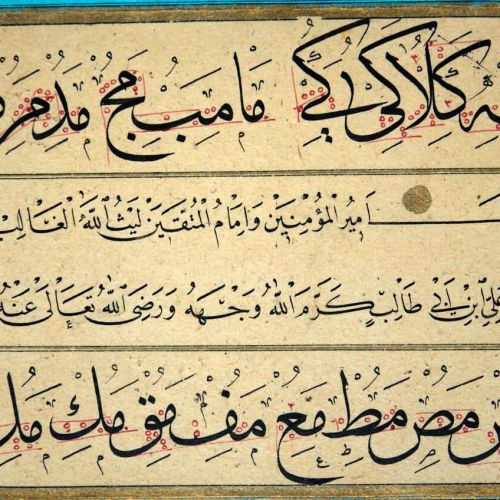 كلا كى كے ما مب مج مد مر
اَمِيرُ الْمُؤْمِنِينَ وَاِمَامُ الْمُتَّقِينَ لَيْثُ اللّٰهِ الْغَالِب
عَلِيِّ ابْنِ اَبِى طَالِبٍ كَرَّمَ اللّٰهُ وَجْهَهُ وَرَضِىَ اللّٰهُ تَعَالٰى عَنْهُ
مص مط مع مف مق مك مل